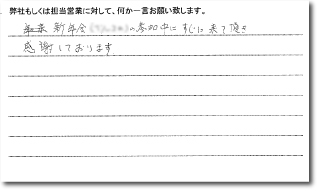 弊社もしくは担当営業に対して、何か一言お願い致します。
新年会 の参加中に すぐに 来て頂き
感謝しております